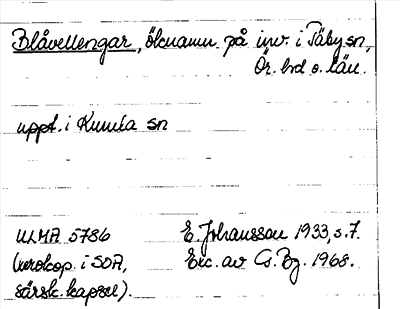 Blåvellengar, öknamn på inv. i Täby sn,
Ör. hd o. län.
uppt. i Kumla sn
ULMA 5786 E. Johansson 1933, s. 7.
(xerokop. i SOA, Exc. av Cs. Bg. 1968.
särsk. kapsel).